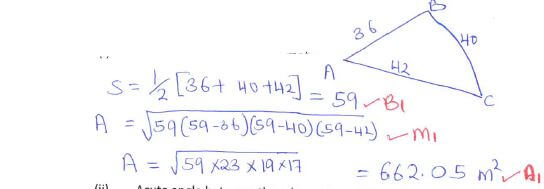 B
36
40
A
42
C
S = 1/2 [36+ 40 +42] = 59 ✓B1
A = √59(59-36)(59-40)(59-42) ✓M1
A = √59 ×23 × 19 ×17 = 662.05 m² ✓A1